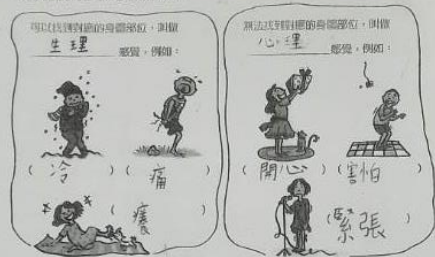 可以找到對應的身體部位，叫做
生理 感覺，例如：
(冷)
(痛)
(癢)
無法找到對應的身體部位，叫做
心理 感覺，例如：
(開心)
(害怕)
(緊張)